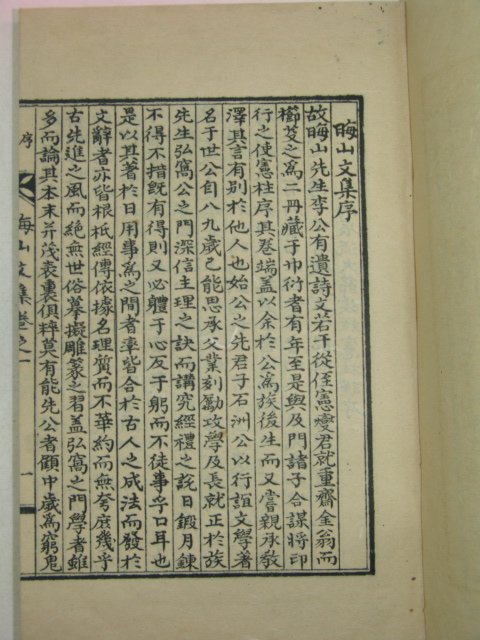 晦山文集序
故晦山先生李公有遺詩文若干從侄憲燮君就重齋金翁而
櫛芟之爲二冊藏于巾衍者有年至是與及門諸子合謀將印
行之使憲柱序其卷端盖以余於公爲族後生而又嘗親承敎
澤其言有别於他人也始公之先君子石洲公以行誼文學著
名于世公自八九歲已能思承父業刻勵攻學及長就正於族
先生弘窩公之門深信主理之訣而講究經禮之說日鍜月鍊
不得不措旣有得則又必軆于心反于躬而不徒事乎口耳也
是以其著於日用事爲之間者率皆合於古人之成法而發於
文辭者亦皆根柢經傳依據名理質而不華約而無夸庶幾乎
古先進之風而絶無世俗摹擬雕篆之習盖弘窩之門學者雖
多而論其本末并茂表裏俱粹莫有能先公者顧中歲爲窮鬼
序
晦山文集卷之一
一